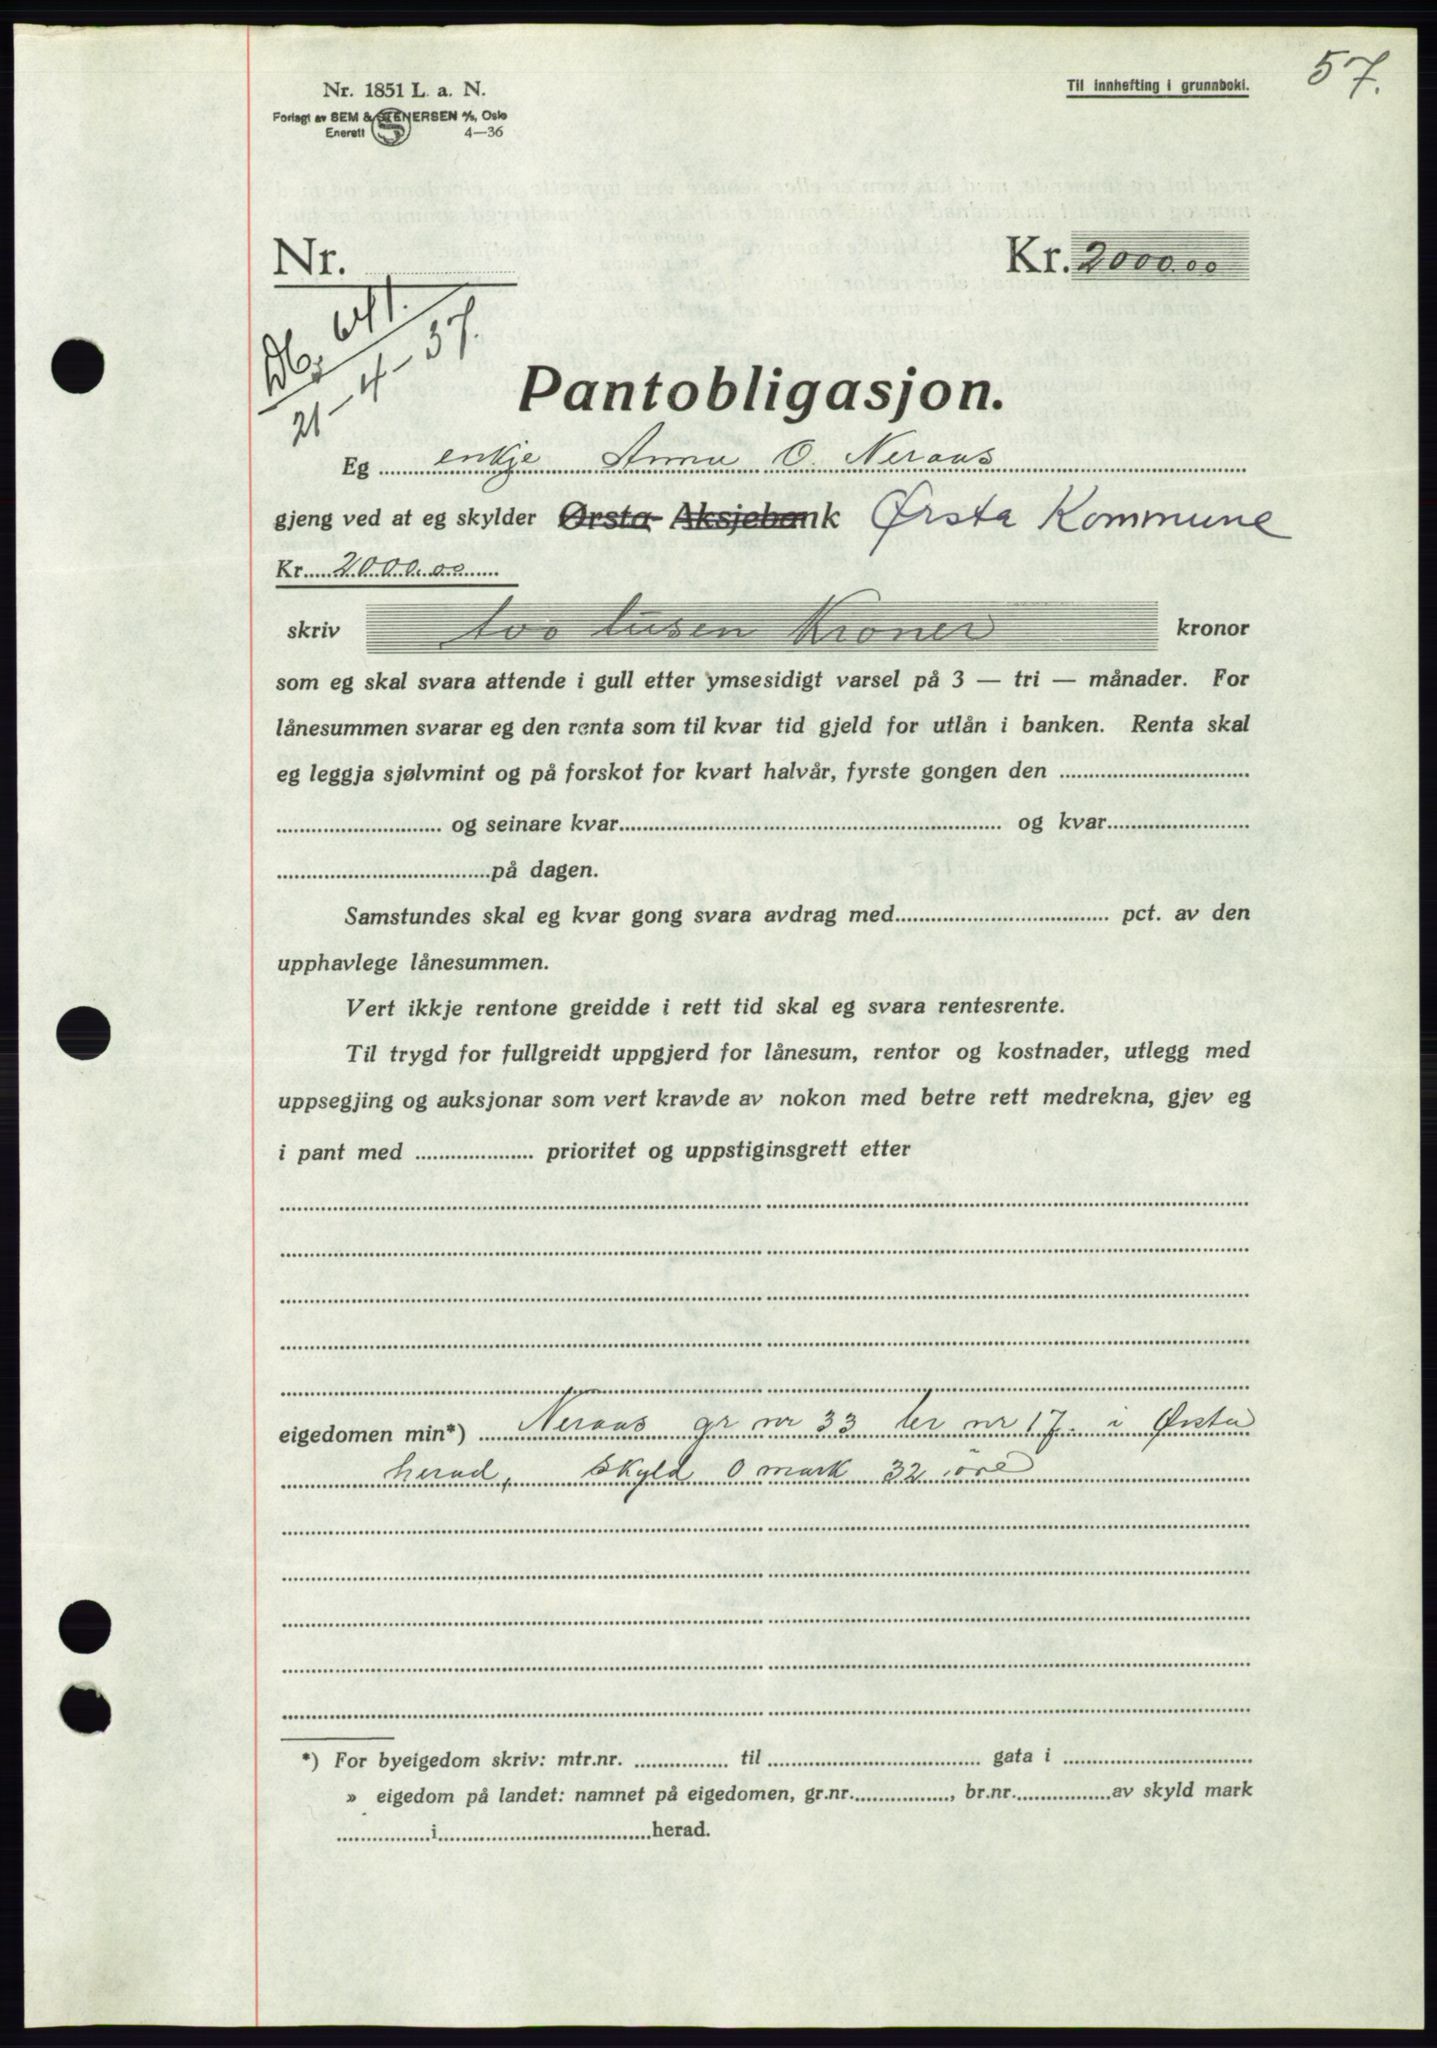 57.
Nr. 1851 L. a. N.
Til innhefting i grunnboki.
Forlagt av SEM & STENERSEN A/S, Oslo
Enerett 4—36
Nr.
Kr. 2000.00
Db. 641.
21-4-37.
Pantobligasjon.
Eg enkje Anna O. Neraas
gjeng ved at eg skylder Ørsta Aksjebank Ørsta Kommune
Kr. 2000.00
skriv two tusen Kroner kronor
som eg skal svara attende i gull etter ymsesidigt varsel på 3 — tri — månader. For
lånesummen svarar eg den renta som til kvar tid gjeld for utlån i banken. Renta skal
eg leggja sjølvmint og på forskot for kvart halvår, fyrste gongen den
og seinare kvar og kvar
på dagen.
Samstundes skal eg kvar gong svara avdrag med pct. av den
upphavlege lånesummen.
Vert ikkje rentone greidde i rett tid skal eg svara rentesrente.
Til trygd for fullgreidt uppgjerd for lånesum, rentor og kostnader, utlegg med
uppsegjing og auksjonar som vert kravde av nokon med betre rett medrekna, gjev eg
i pant med prioritet og uppstiginsgrett etter
eigedomen min*) Neraas gr nr 33 br nr 17 i Ørsta
herad, Skyld 0 mark 32 øre
*) For byeigedom skriv: mtr.nr. til gata i
» eigedom på landet: namnet på eigedomen, gr.nr. , br.nr. av skyld mark
i herad.